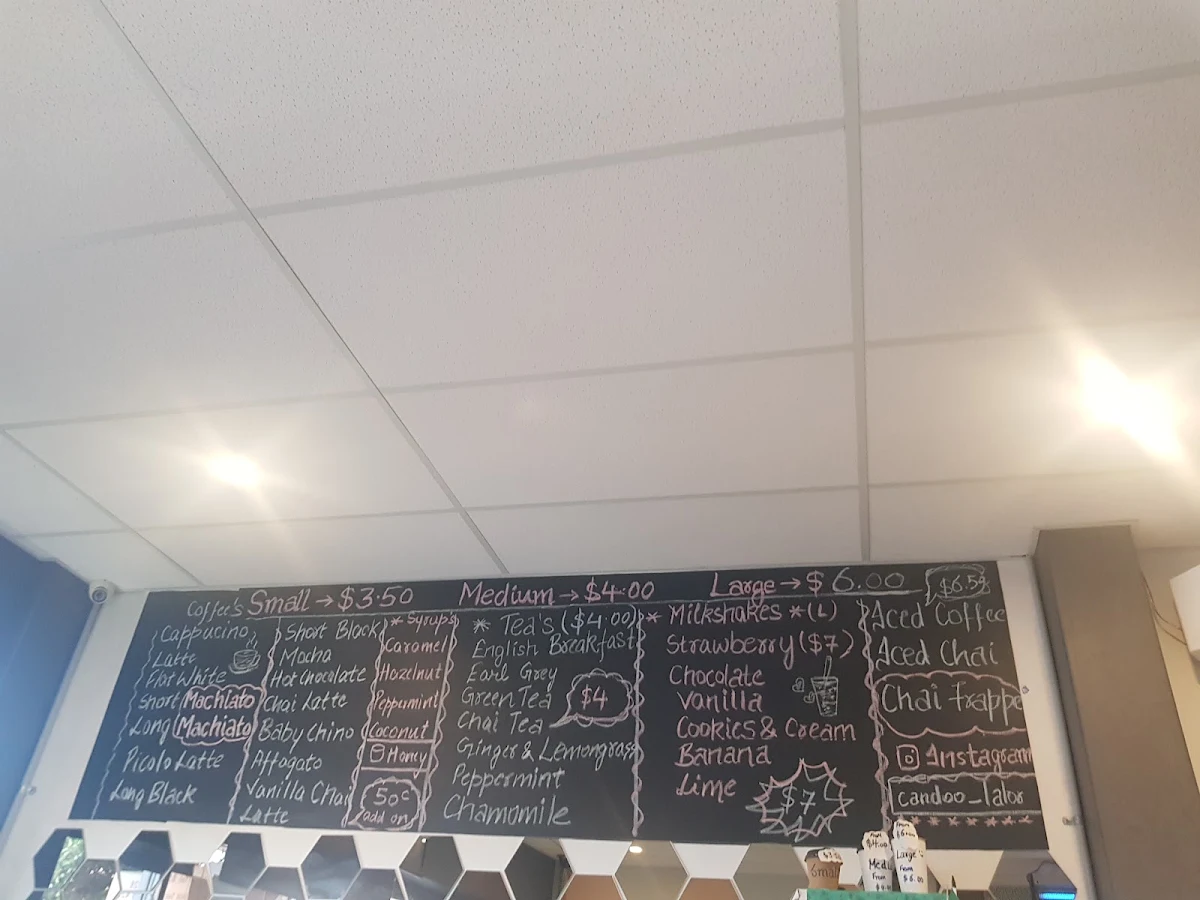 Coffee's Small → $3.50 Medium → $4.00 Large → $6.00
Cappucino
Latte
Flat White
Short Machiato
Long Machiato
Picolo Latte
Long Black
Short Black
Mocha
Hot Chocolate
Chai Latte
Baby Chino
Affagato
Vanilla Chai
Latte
* Syrups
Caramel
Hazelnut
Peppermint
Coconut
Honey
50c
add on
* Tea's ($4.00)
English Breakfast
Earl Grey
Green Tea
Chai Tea
Ginger & Lemongrass
Peppermint
Chamomile
$4
* Milkshakes * (L)
Strawberry ($7)
Chocolate
Vanilla
Cookies & Cream
Banana
Lime
$7
$6.50
Iced Coffee
Iced Chai
Chai frappe
Instagram
candoo_lalor
Small
From
$4.00
Large
From
$6.00